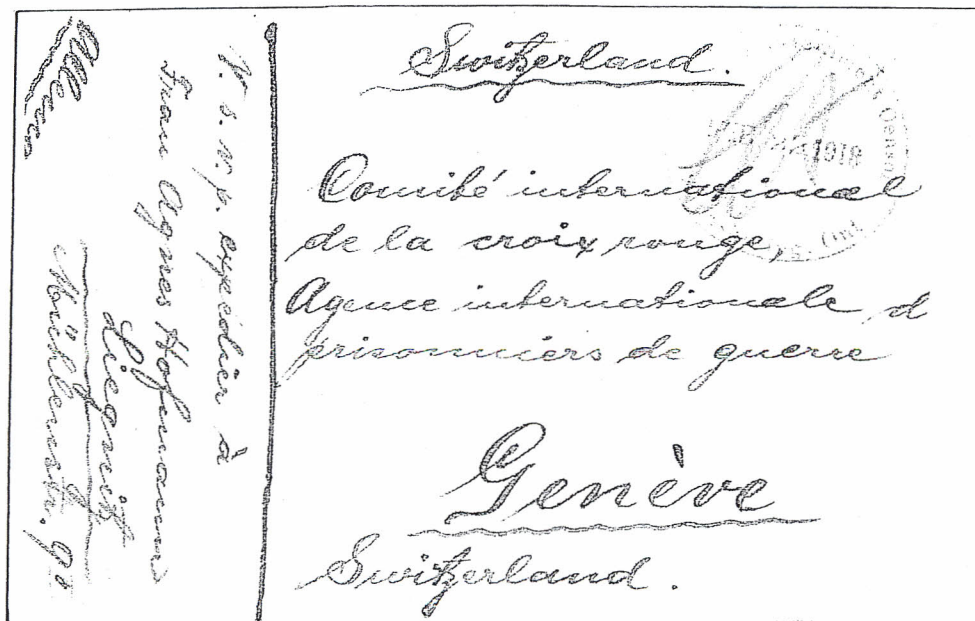 Switzerland.
1918
Comité international
de la croix rouge,
Agence internationale d
prisonniers de guerre
Genève
Switzerland.
V. s. v. p. expédier à
Frau Agnes Hofmann
Liegnitz